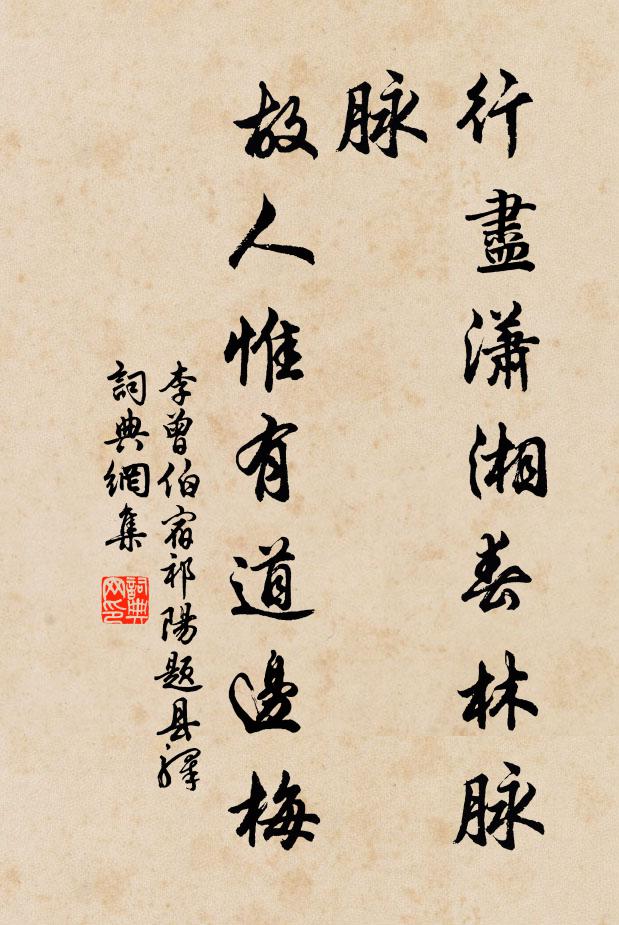 行盡瀟湘春林脉
脉
故人惟有道邊梅
李曾伯宿祁陽題县驛
詞典網集
詞典網印